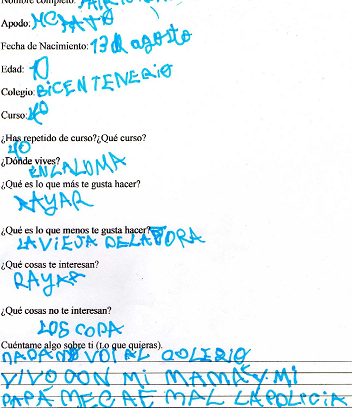 Nombre completo:
Apodo:
Fecha de Nacimiento: 13 d agosto
Edad: 10
Colegio: BiCENTENERIO
Curso: 4o
¿Has repetido de curso?¿Qué curso?
4o
¿Dónde vives?
ENLALOMA
¿Qué es lo que más te gusta hacer?
RAYAR
¿Qué es lo que menos te gusta hacer?
LAVIEJA DELAFORA
¿Qué cosas te interesan?
RAYAR
¿Qué cosas no te interesan?
LOS COPA
Cuéntame algo sobre ti (Lo que quieras).
NADANO VOI AL COLERIO
VIVO CON Mi MAMA Y Mi
PAPA MECAE MAL LAPOLICIA